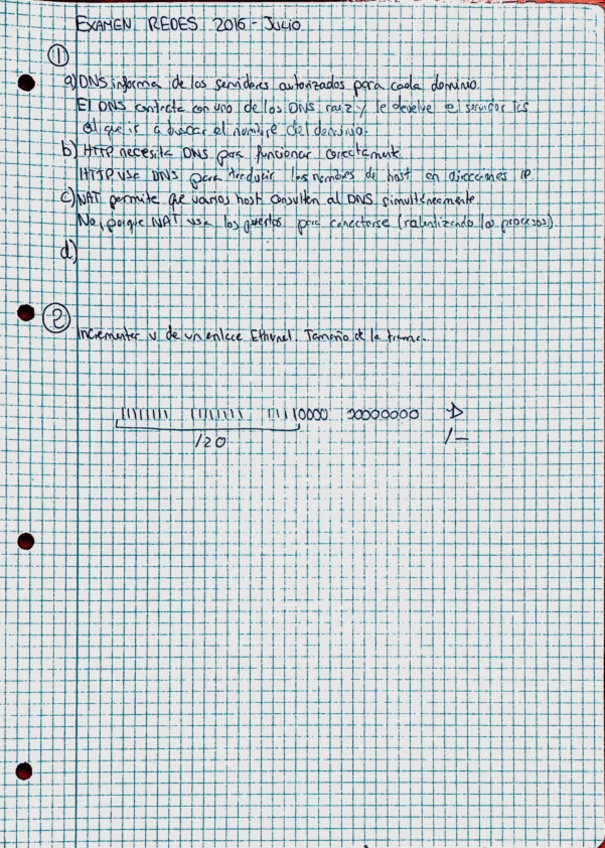 EXAMEN REDES 2016 - JULIO
①
a) DNS informa de los servidores autorizados para cada dominio.
El DNS contacta con uno de los DNS raiz y le develve el servidor TLS
al que ir a buscar el nombre del dominio.
b) HTTP necesita DNS para funcionar correctamente
HTTP usa DNS para traducir los nombres de host en direcciones IP.
c) NAT permite que varios host consulten al DNS simultáneamente.
No, porque NAT usa los puertos para conectarse (ralentizando los procesos).
d)
②
Incrementar v de un enlace Ethernet. Tamaño de la trama.
11111111 11111111 11110000 00000000
/20 /-